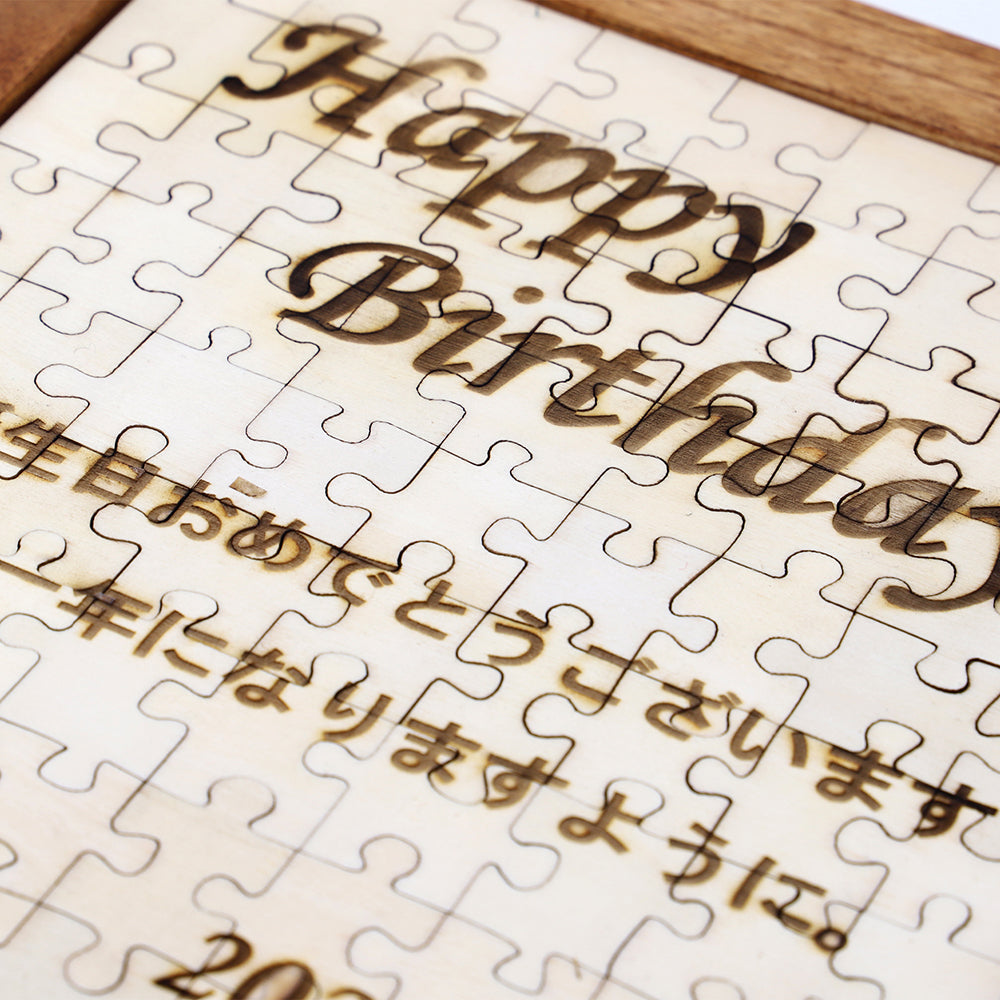 Happy
Birthday
生日おめでとうございます
一年になりますように。
202